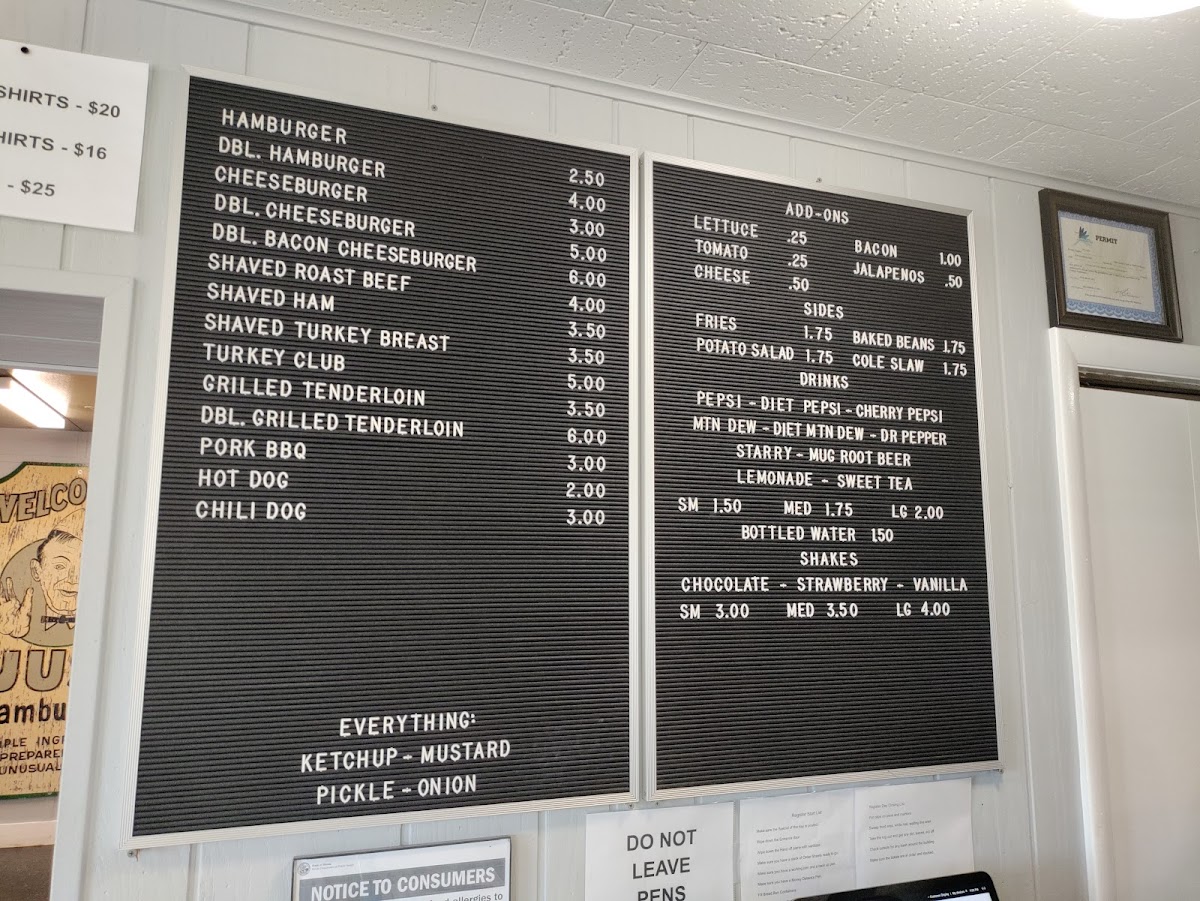 SHIRTS - $20
HIRTS - $16
- $25
HAMBURGER 2.50
DBL. HAMBURGER 4.00
CHEESEBURGER 3.00
DBL. CHEESEBURGER 5.00
DBL. BACON CHEESEBURGER 6.00
SHAVED ROAST BEEF 4.00
SHAVED HAM 3.50
SHAVED TURKEY BREAST 3.50
TURKEY CLUB 5.00
GRILLED TENDERLOIN 3.50
DBL. GRILLED TENDERLOIN 6.00
PORK BBQ 3.00
HOT DOG 2.00
CHILI DOG 3.00
EVERYTHING:
KETCHUP - MUSTARD
PICKLE - ONION
ADD-ONS
LETTUCE .25 BACON 1.00
TOMATO .25 JALAPENOS .50
CHEESE .50
SIDES
FRIES 1.75 BAKED BEANS 1.75
POTATO SALAD 1.75 COLE SLAW 1.75
DRINKS
PEPSI - DIET PEPSI - CHERRY PEPSI
MTN DEW - DIET MTN DEW - DR PEPPER
STARRY - MUG ROOT BEER
LEMONADE - SWEET TEA
SM 1.50 MED 1.75 LG 2.00
BOTTLED WATER 1.50
SHAKES
CHOCOLATE - STRAWBERRY - VANILLA
SM 3.00 MED 3.50 LG 4.00
PERMIT
NOTICE TO CONSUMERS
allergies to
DO NOT
LEAVE
PENS